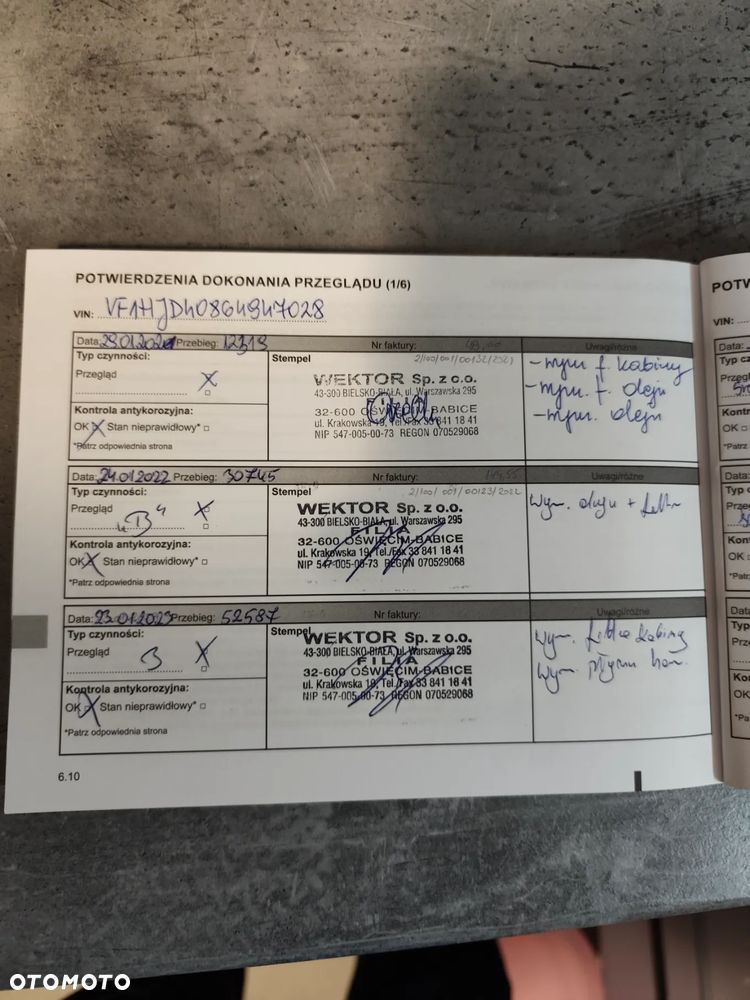 POTWIERDZENIA DOKONANIA PRZEGLĄDU (1/6)
VIN: VF1HJD40864947028
Data: 29.01.2021 Przebieg: 12319 Nr faktury: Uwagi/różne
Typ czynności:
Przegląd X
Kontrola antykorozyjna:
OK X Stan nieprawidłowy*
*Patrz odpowiednia strona
Stempel
2/100/001/00132/2021
WEKTOR Sp. z o.o.
43-300 BIELSKO-BIAŁA, ul. Warszawska 295
32-600 OŚWIĘCIM-BABICE
ul. Krakowska 19, Tel./Fax 33 841 18 41
NIP 547-005-00-73 REGON 070529068
- wym. f. kabiny
- wym. f. oleju
- wym. oleju
Data: 24.01.2022 Przebieg: 30745 Nr faktury: Uwagi/różne
Typ czynności:
Przegląd X
"B"
Kontrola antykorozyjna:
OK X Stan nieprawidłowy*
*Patrz odpowiednia strona
Stempel
2/100/001/00123/2022
WEKTOR Sp. z o.o.
43-300 BIELSKO-BIAŁA, ul. Warszawska 295
FILIA
32-600 OŚWIĘCIM-BABICE
ul. Krakowska 19, Tel./Fax 33 841 18 41
NIP 547-005-00-73 REGON 070529068
wym. oleju + filtr
Data: 23.01.2023 Przebieg: 52587 Nr faktury: Uwagi/różne
Typ czynności:
Przegląd B X
Kontrola antykorozyjna:
OK X Stan nieprawidłowy*
*Patrz odpowiednia strona
Stempel
WEKTOR Sp. z o.o.
43-300 BIELSKO-BIAŁA, ul. Warszawska 295
FILIA
32-600 OŚWIĘCIM-BABICE
ul. Krakowska 19, Tel./Fax 33 841 18 41
NIP 547-005-00-73 REGON 070529068
wym. filtra kabiny
wym. płynu ham.
6.10
POTW
VIN:
Data:
Typ c
Przegl
Kont
OK
*Patrz
Data:
Typ
Prze
Kon
OK
*Pat
Data
Typ
Prz
Ko
OK
*Pa
OTOMOTO